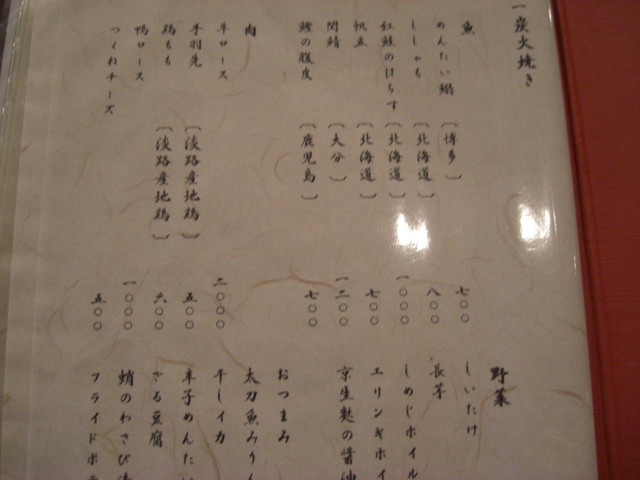 一炭火焼き
魚
めんたい鰯 〔博多〕 七〇〇
ししゃも 〔北海道〕 八〇〇
紅鮭のはらす 〔北海道〕 一〇〇〇
帆立 〔北海道〕 七〇〇
関鯖 〔大分〕 一二〇〇
鰹の腹皮 〔鹿児島〕 七〇〇
肉
牛ロース 二〇〇〇
手羽先 〔淡路産地鶏〕 五〇〇
鶏もも 〔淡路産地鶏〕 六〇〇
鴨ロース 一〇〇〇
つくねチーズ 五〇〇
野菜
しいたけ
長芋
しめじホイル
エリンギホイ
京生麩の醤油
おつまみ
太刀魚みりん
干しイカ
辛子めんたい
ざる豆腐
蛸のわさび
フライドポ